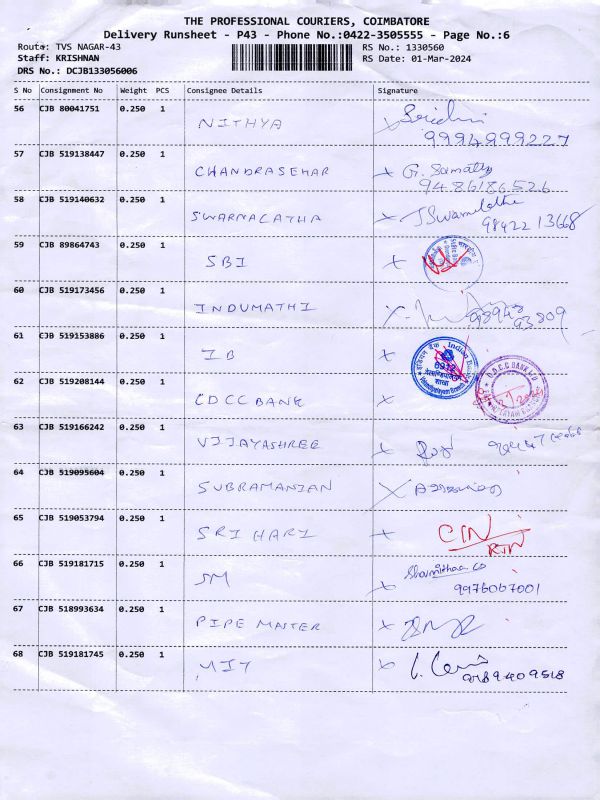 THE PROFESSIONAL COURIERS, COIMBATORE
Delivery Runsheet - P43 - Phone No.:0422-3505555 - Page No.:6
Route: TVS NAGAR-43 RS No.: 1330560
Staff: KRISHNAN RS Date: 01-Mar-2024
DRS No.: DCJB133056006
S No Consignment No Weight PCS Consignee Details Signature
56 CJB 80041751 0.250 1 NITHYA
9994999227
57 CJB 519138447 0.250 1 CHANDRASEHAR G. Sumathy
9486186526
58 CJB 519140632 0.250 1 SWARNALATHA
9842213668
59 CJB 89864743 0.250 1 SBI
60 CJB 519173456 0.250 1 INDUMATHI
93809
61 CJB 519153886 0.250 1 IB
इंडियन बैंक Indian Bank
शाखा
62 CJB 519208144 0.250 1 CDCC BANK
D.C.C BANK LTD
63 CJB 519166242 0.250 1 VIJAYASHREE
64 CJB 519095604 0.250 1 SUBRAMANIAN
65 CJB 519053794 0.250 1 SRI HARI
RTN
66 CJB 519181715 0.250 1 SM Sharmithaa co
9976067001
67 CJB 518993634 0.250 1 PIPE MASTER
68 CJB 519181745 0.250 1 MIT
9789409518